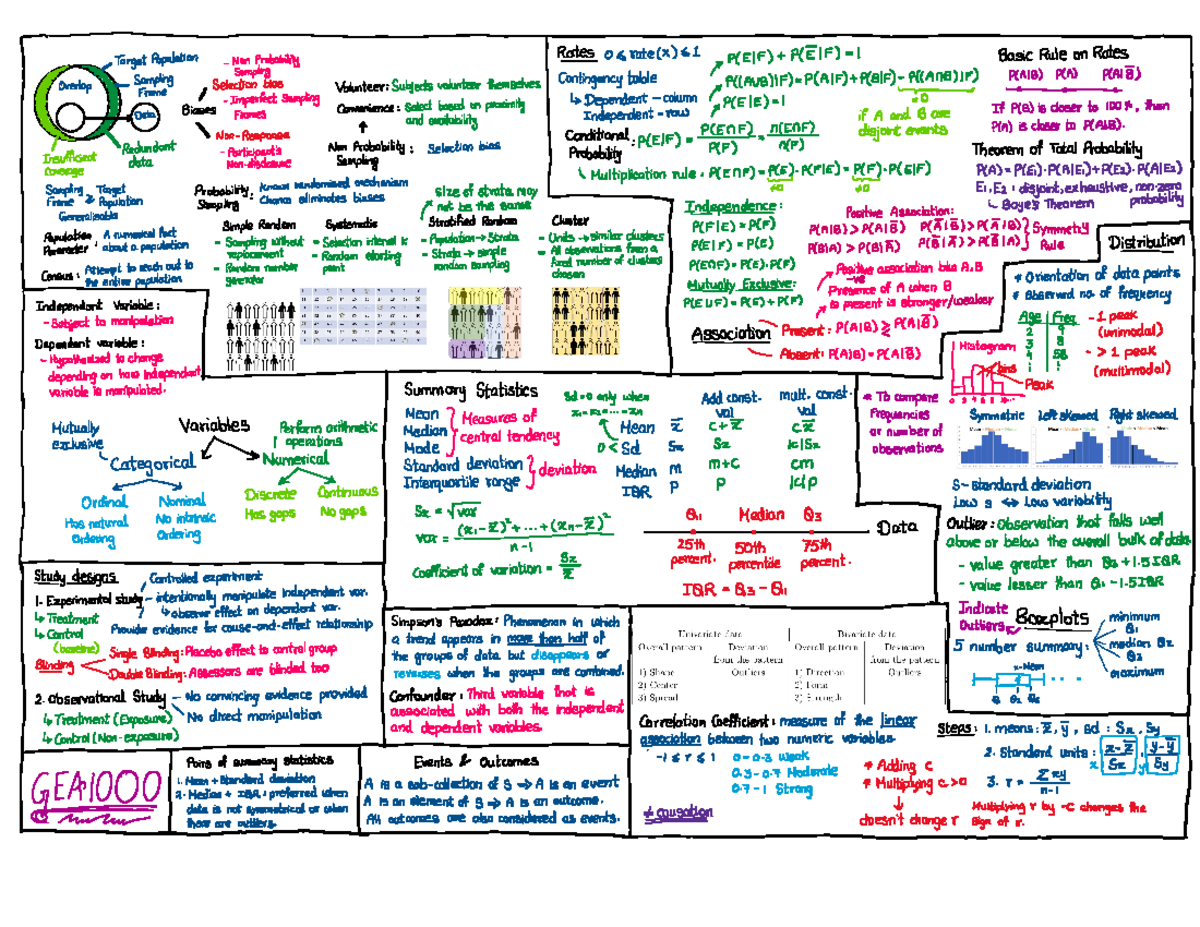 Target Population
Sampling
Frame
Overlap
Data
Insufficient
coverage
Redundant
data
Sampling ≥ Target
Frame Population
Generalisable
Population : A numerical fact
Parameter about a population
Census : Attempt to reach out to
the entire population
Biases
- Non Probability
Sampling
Selection bias
- Imperfect Sampling
Frames
Non-Response
- Participant's
Non-disclosure
Volunteer : Subjects volunteer themselves
Convenience : Select based on proximity
and availability
Non Probability :
Sampling
Selection bias
Probability : Known randomised mechanism
Sampling Chance eliminates biases
size of strata may
not be the same
Simple Random
- Sampling without
replacement
- Random number
generator
Systematic
- Selection interval k
- Random starting
point
Stratified Random
- Population → Strata
- Strata → simple
random sampling
Cluster
- Units → similar clusters
- All observations from a
fixed number of clusters
chosen
Rates 0 ≤ rate(x) ≤ 1
Contingency table
↳ Dependent - column
Independent - row
Conditional :
Probability
P(E|F) = P(E∩F) / P(F) = n(E∩F) / n(F)
P(E|F) + P(E̅|F) = 1
P((A∪B)|F) = P(A|F) + P(B|F) - P((A∩B)|F)
P(E|E) = 1
=0
if A and B are
disjoint events
Multiplication rule : P(E∩F) = P(E)·P(F|E) = P(F)·P(E|F)
≠0 ≠0
Independence :
P(F|E) = P(F)
P(E|F) = P(E)
P(E∩F) = P(E)·P(F)
Mutually Exclusive :
P(E∪F) = P(E) + P(F)
Positive Association :
P(A|B) > P(A|B̅) P(A̅|B̅) > P(A̅|B)
P(B|A) > P(B|A̅) P(B̅|A̅) > P(B̅|A)
Symmetry
Rule
Positive association btw A,B
Presence of A when B
is present is stronger/weaker
Association
Present : P(A|B) ≷ P(A|B̅)
Absent : P(A|B) = P(A|B̅)
Basic Rule on Rates
P(A|B) P(A) P(A|B̅)
If P(B) is closer to 100%, then
P(A) is closer to P(A|B).
Theorem of Total Probability
P(A) = P(E₁)·P(A|E₁) + P(E₂)·P(A|E₂)
E₁, E₂ : disjoint, exhaustive, non-zero
probability
Baye's Theorem
Distribution
* Orientation of data points
* Observed no. of frequency
Age Freq
2 9
3 8
4 58
⋮ ⋮
- 1 peak
(unimodal)
- > 1 peak
(multimodal)
Histogram
bins
Peak
* To compare
frequencies
or number of
observations
Symmetric Left skewed Right skewed
S - standard deviation
Low s ↔ Low variability
Outlier : Observation that falls well
above or below the overall bulk of data.
- value greater than Q₃ + 1.5IQR
- value lesser than Q₁ - 1.5IQR
Indicate
Outliers
Boxplots
5 number summary :
minimum
Q₁
median Q₂
Q₃
maximum
x-Mean
Q₁ Q₂ Q₃
Independent Variable :
- Subject to manipulation
Dependent variable :
- Hypothesized to change
depending on how independent
variable is manipulated.
Mutually
exclusive
Variables
Perform arithmetic
operations
Categorical
Numerical
Ordinal
Has natural
Ordering
Nominal
No intrinsic
Ordering
Discrete
Has gaps
Continuous
No gaps
Summary Statistics
Mean
Median
Mode
Measures of
central tendency
Standard deviation
Interquartile range
deviation
Sx = √var
var = (x₁-x̅)² + ... + (xₙ-x̅)² / n-1
Coefficient of variation = Sx / x̅
Sd = 0 only when
x₁ = x₂ = ... = xₙ
0 <
Add const. mult. const.
val val
Mean x̅ c+x̅ cx̅
Sd Sx Sx |c|Sx
Median m m+c cm
IQR p p |c|p
Q₁ Median Q₃
Data
25th
percent.
50th
percentile
75th
percent.
IQR = Q₃ - Q₁
Study designs
Controlled experiment
1. Experimental study - intentionally manipulate independent var.
↳ observe effect on dependent var.
↳ Treatment
↳ Control
(baseline)
Provide evidence for cause-and-effect relationship
Blinding
Single Blinding : Placebo effect to control group
Double Blinding : Assessors are blinded too
2. Observational Study - No convincing evidence provided
No direct manipulation
↳ Treatment (Exposure)
↳ Control (Non-exposure)
Simpson's Paradox : Phenomenon in which
a trend appears in more than half of
the groups of data but disappears or
reverses when the groups are combined.
Confounder : Third variable that is
associated with both the independent
and dependent variables.
Univariate data Bivariate data
Overall pattern Deviation Overall pattern Deviation
from the pattern from the pattern
1) Shape Outliers 1) Direction Outliers
2) Center 2) Form
3) Spread 3) Strength
Correlation Coefficient : measure of the linear
association between two numeric variables.
-1 ≤ r ≤ 1
0 - 0.3 Weak
0.3 - 0.7 Moderate
0.7 - 1 Strong
≠ causation
* Adding c
* Multiplying c>0
doesn't change r
Steps : 1. means : x̅, y̅, sd : Sx, Sy
2. Standard units : x x-x̅ / Sx y y-y̅ / Sy
3. r = Σxy / n-1
Multiplying r by -c changes the
sign of r.
GEA1000
Pairs of summary statistics
1. Mean + Standard deviation
2. Median + IQR : preferred when
data is not symmetrical or when
there are outliers.
Events & Outcomes
A is a sub-collection of S ⇒ A is an event
A is an element of S ⇒ A is an outcome.
All outcomes are also considered as events.